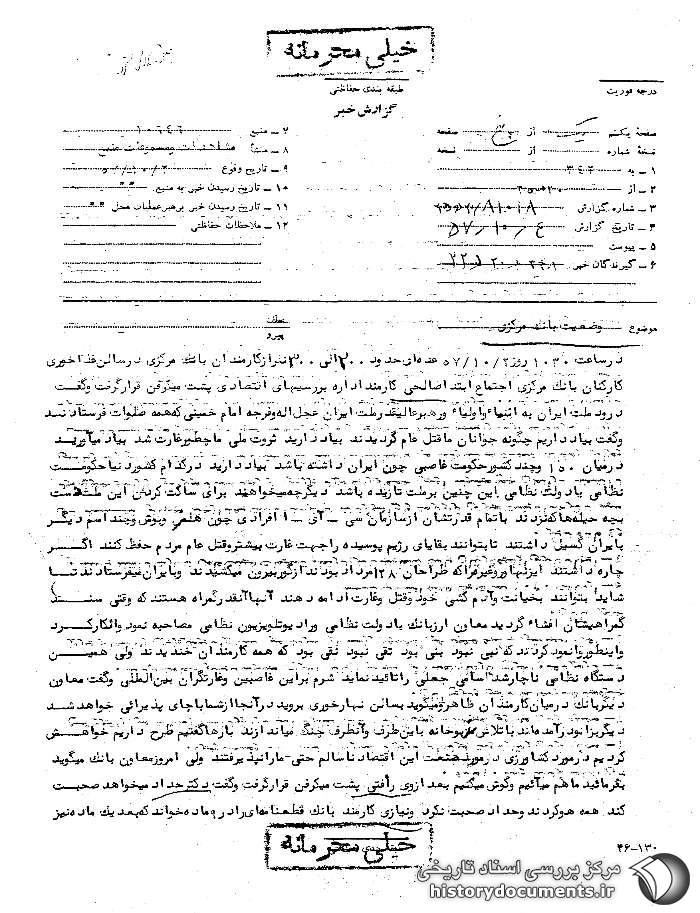 خیلی محرمانه
طبقه بندی حفاظتی
گزارش خبر
درجه فوریت
صفحه یکم از صفحه
نسخه شماره از نسخه
۱ ـ به ۳۴۲
۲ ـ از
۳ ـ شماره گزارش
۴ ـ تاریخ گزارش ۵۷/۱۰/۴
۵ ـ پیوست
۶ ـ گیرندگان خبر
۷ ـ منبع ۱۰۶۴۶
۸ ـ منشأ مشاهدات و مسموعات منبع
۹ ـ تاریخ وقوع
۱۰ ـ تاریخ رسیدن خبر به منبع " "
۱۱ ـ تاریخ رسیدن خبر به رهبر عملیات محل " "
۱۲ ـ ملاحظات حفاظتی
موضوع وضعیت بانک مرکزی
عطف
پیرو
در ساعت ۱۰۳۰ روز ۵۷/۱۰/۲ عده ای حدود ۲۰۰ الی ۳۰۰ نفر از کارمندان بانک مرکزی در سالن غذاخوری
کارکنان بانک مرکزی اجتماع ابتدا صالحی کارمند اداره بررسیهای اقتصادی پشت میکرفن قرار گرفت و گفت
درود ملت ایران به انبیاء و اولیاء و رهبر عالیقدر ملت ایران عجل اله و فرجه امام خمینی که همه صلوات فرستادند
و گفت بیاد داریم چگونه جوانان ما قتل عام گردیدند بیاد دارید ثروت ملی ما چطور غارت شد بیاد میآورید
در میان ۱۵۰ و چند کشور حکومت غاصبی چون ایران داشته باشد بیاد دارید در کدام کشور دنیا حکومت
نظامی یا دولت نظامی این چنین بر ملت تازیده باشد دیگر چه میخواهند برای ساکت کردن این ملت دست
بچه حیله ها که نزدند با تمام قدرتشان از سازمان سی ـ آی ـ ا افرادی چون و چند اسم دیگر
بایران گسیل داشتند تا بتوانند بقایای رژیم پوسیده را جهت غارت بیشتر و قتل عام مردم حفظ کنند اگر
چاره داشتند اینها و غیره را که طراحان ۲۸ مرداد بودند از گور بیرون میکشیدند و بایران میفرستادند تا
شاید بتوانند بخیانت و آدم کشی خود و قتل و غارت ادامه دهند آنها آنقدر گمراه هستند که وقتی سند
گمراهیشان افشاء گردید معاون ارز بانک با دولت نظامی و رادیو تلویزیون نظامی مصاحبه نمود و انکار کرد
و اینطور وانمود کردند که نبی نبود بنی بود تقی نبود نقی بود که همه کارمندان خندیدند ولی همین
دستگاه نظامی ناچار شد اسامی جعلی را تائید نماید شرم بر این غاصبین و غارتگران بین المللی و گفت معاون
دیگر بانک در میان کارمندان ظاهر و میگوید بسالن نهارخوری بروید در آنجا از شما با چای پذیرائی خواهد شد
دیگر بزانو درآمده اند با تلاش مذبوحانه باین طرف و آنطرف چنگ میاندازند بارها گفتیم طرح داریم خواهش
کردیم در مورد کشاورزی در مورد صنعت این اقتصاد ناسالم حتی ما را نپذیرفتند ولی امروز معاون بانک میگوید
بفرمائید ما هم میآئیم و گوش میکنیم بعد از وی رأفتی پشت میکرفن قرار گرفت و گفت دکتر حداد میخواهد صحبت
کند همه هو کردند و حداد صحبت نکرد و نیازی کارمند بانک قطعنامه ای را در ماده خواند که بعد یک ماده نیز
خیلی محرمانه
۴۶-۱۳۰
مرکز بررسی اسناد تاریخی
historydocuments.ir